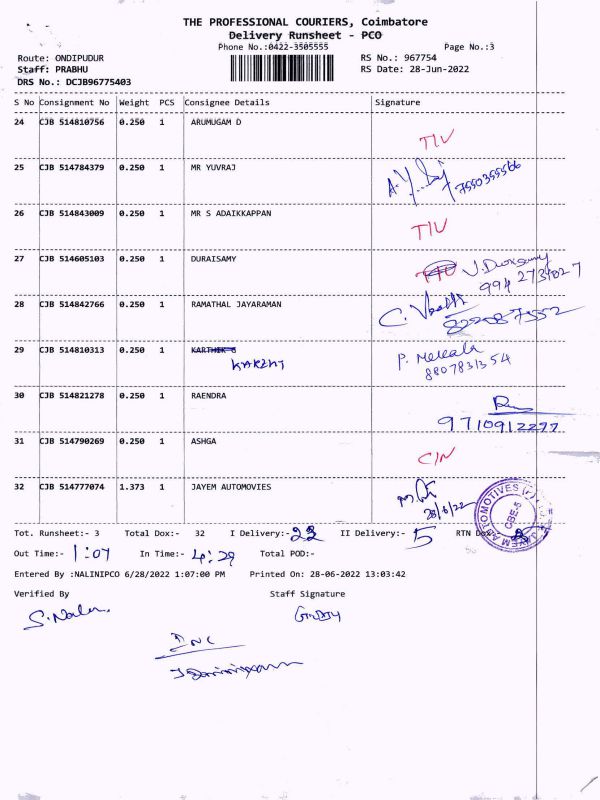 THE PROFESSIONAL COURIERS, Coimbatore
Delivery Runsheet - PCO
Phone No.:0422-3505555 Page No.:3
Route: ONDIPUDUR RS No.: 967754
Staff: PRABHU RS Date: 28-Jun-2022
DRS No.: DCJB96775403
S No Consignment No Weight PCS Consignee Details Signature
24 CJB 514810756 0.250 1 ARUMUGAM D
TIV
25 CJB 514784379 0.250 1 MR YUVRAJ
7550355566
26 CJB 514843009 0.250 1 MR S ADAIKKAPPAN
TIV
27 CJB 514605103 0.250 1 DURAISAMY
994 2734027
28 CJB 514842766 0.250 1 RAMATHAL JAYARAMAN
822087552
29 CJB 514810313 0.250 1 KARTHIK G
8807831354
30 CJB 514821278 0.250 1 RAENDRA
9710912277
31 CJB 514790269 0.250 1 ASHGA
C/N
32 CJB 514777074 1.373 1 JAYEM AUTOMOVIES
28/6/22
JAYEM AUTOMOTIVES (P)
CBE-5
Tot. Runsheet:- 3 Total Dox:- 32 I Delivery:- 23 II Delivery:- 5 RTN
Out Time:- 1:07 In Time:- 4:29 Total POD:-
Entered By :NALINIPCO 6/28/2022 1:07:00 PM Printed On: 28-06-2022 13:03:42
Verified By Staff Signature